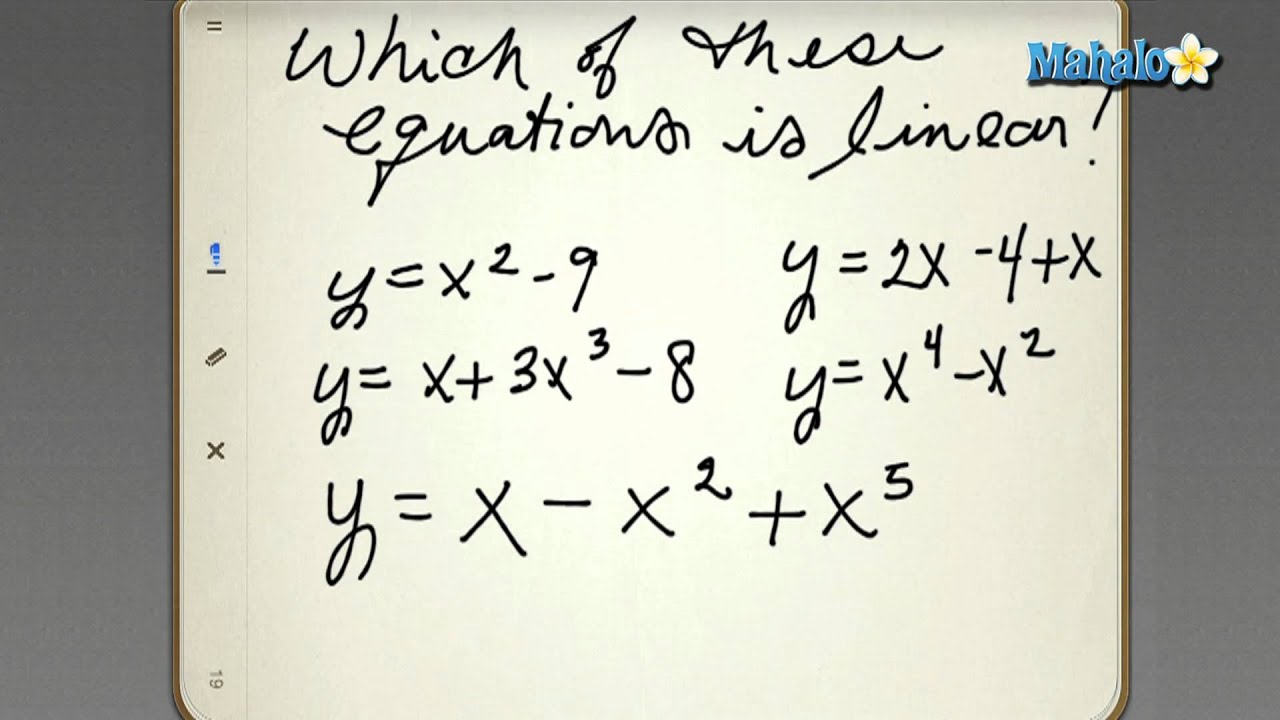 Mahalo
Which of these
equations is linear?
y = x² - 9
y = 2x - 4 + x
y = x + 3x³ - 8
y = x⁴ - x²
y = x - x² + x⁵
19